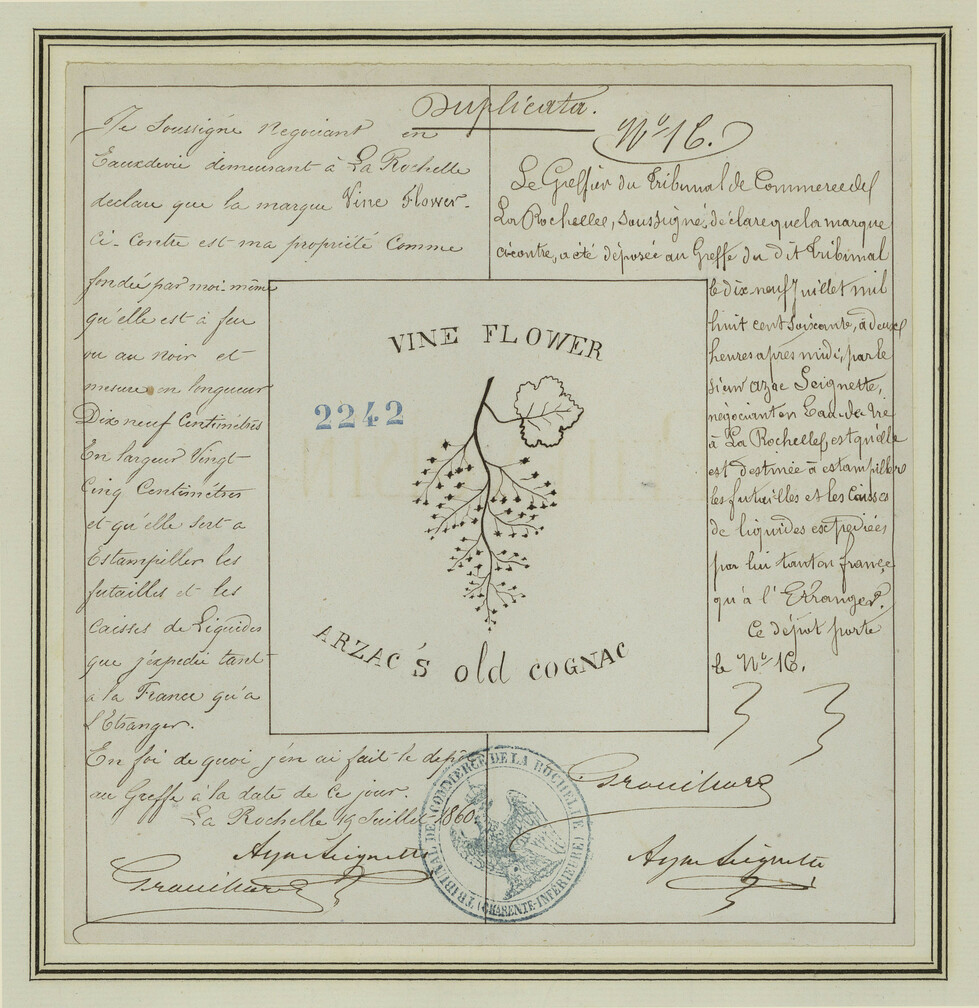 Duplicata.
Je Soussigné Negociant en
Eauxdevie demeurant à La Rochelle
declare que la marque Vine Flower.
Ci-Contre est ma propriété Comme
fondée par moi-même
qu'elle est à feu
ou au noir et
mesure en longueur
Dix neuf Centimétres
En largeur Vingt-
Cinq Centimétres
et qu'elle sert a
Estampiller les
futailles et les
Caisses de Liquides
que j'expedie tant
a la France qu'a
l'Etranger.
En foi de quoi j'en ai fait le dépôt
au Greffe à la date de ce jour.
La Rochelle 19 Juillet 1860
Nº 16.
Le Greffier du Tribunal de Commerce de
La Rochelle, soussigné, déclare que la marque
ci-contre, a été déposée au Greffe du dit Tribunal
le dix-neuf Juillet mil
huit cent soixante, à deux
heures après midi, par le
sieur Seignette,
négociant en Eau-de-Vie
à La Rochelle, est qu'elle
est destinée à estampiller
les futailles et les Caisses
de liquides expédiées
par lui tant en france
qu'à l'Etranger.
Ce dépôt porte
le Nº 16.
VINE FLOWER
2242
ARZAC'S old COGNAC
TRIBUNAL DE COMMERCE DE LA ROCHELLE
(CHARENTE-INFÉRIEURE)